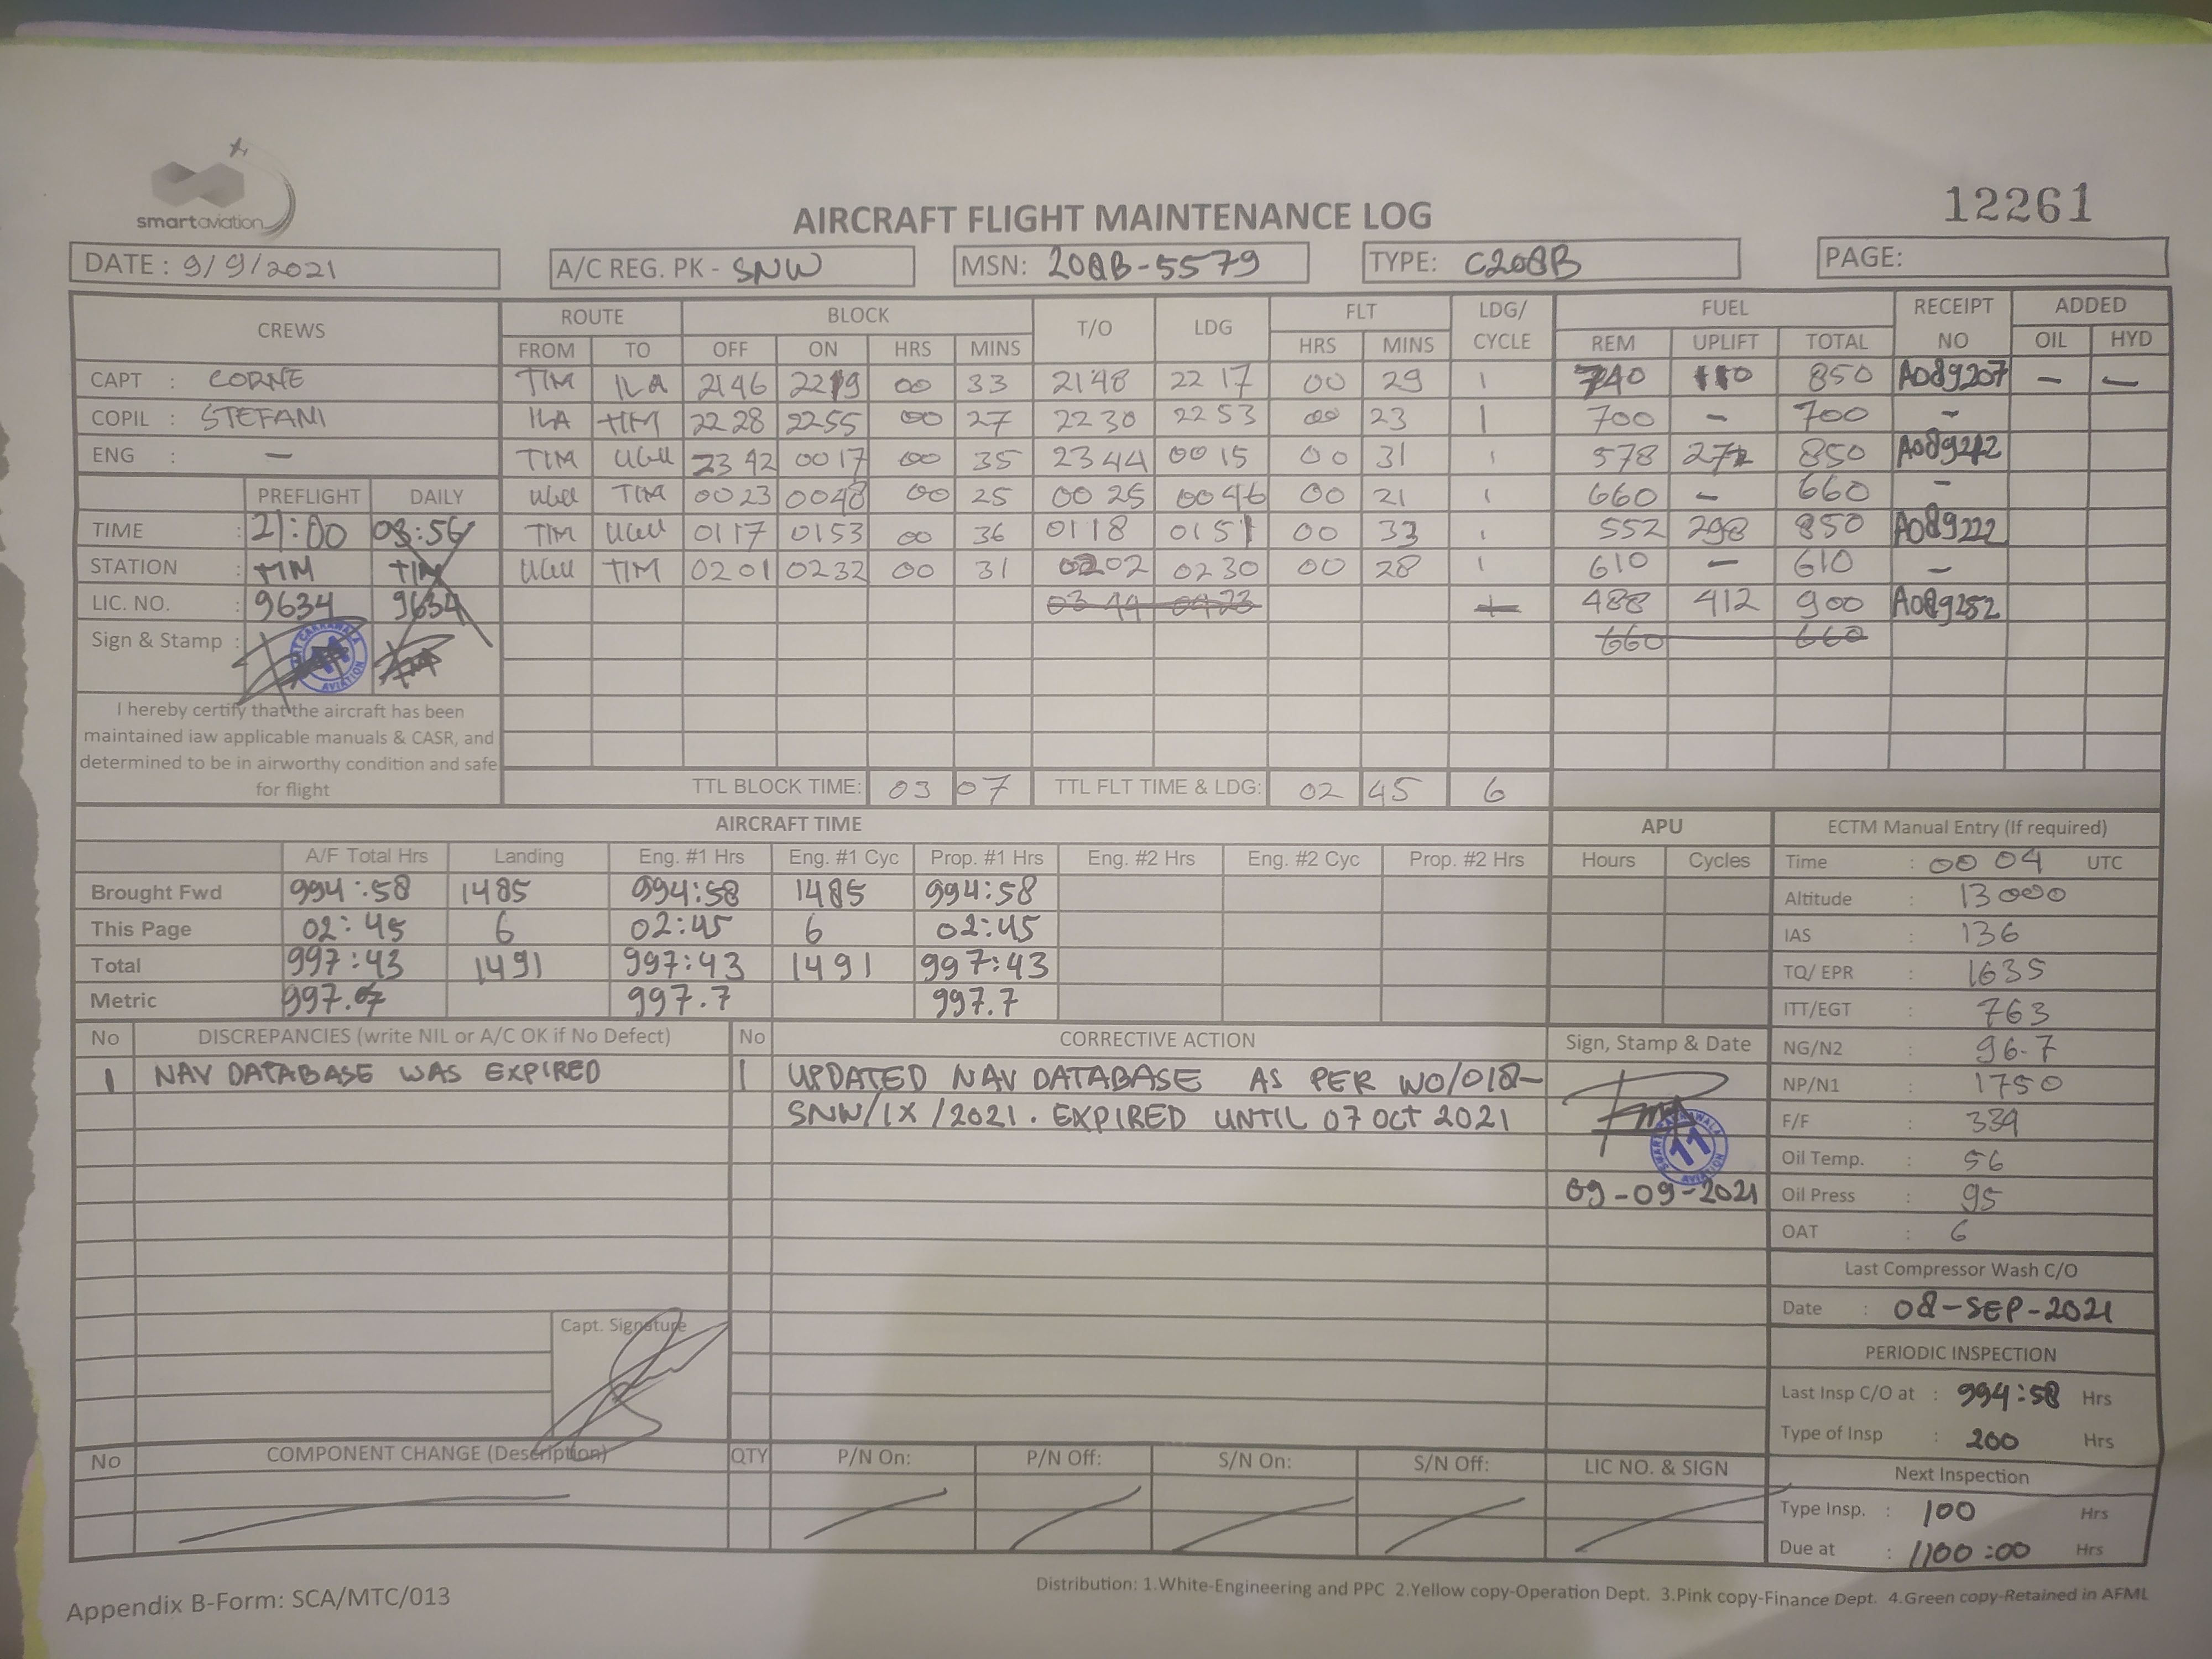 smartaviation
12261
AIRCRAFT FLIGHT MAINTENANCE LOG
DATE : 9/9/2021 A/C REG. PK - SNW MSN: 208B-5579 TYPE: C208B PAGE:
CREWS ROUTE BLOCK T/O LDG FLT LDG/ CYCLE FUEL RECEIPT NO ADDED
FROM TO OFF ON HRS MINS HRS MINS REM UPLIFT TOTAL OIL HYD
CAPT : CORNE TIM ILA 2146 2219 00 33 2148 2217 00 29 1 740 110 850 A089207 — —
COPIL : STEFANI ILA TIM 2228 2255 00 27 2230 2253 00 23 1 700 - 700 -
ENG : — TIM UGU 2342 0017 00 35 2344 0015 00 31 1 578 272 850 A089212
PREFLIGHT DAILY UGU TIM 0023 0048 00 25 0025 0046 00 21 1 660 - 660 -
TIME : 21:00 03:56 TIM UGU 0117 0153 00 36 0118 0151 00 33 1 552 298 850 A089222
STATION : TIM TIM UGU TIM 0201 0232 00 31 0202 0230 00 28 1 610 - 610 -
LIC. NO. : 9634 9634 03 44 04 23 1 488 412 900 A089252
Sign & Stamp : 660 660
AVIATION
I hereby certify that the aircraft has been
maintained iaw applicable manuals & CASR, and
determined to be in airworthy condition and safe
for flight
TTL BLOCK TIME: 03 07 TTL FLT TIME & LDG: 02 45 6
AIRCRAFT TIME APU ECTM Manual Entry (If required)
A/F Total Hrs Landing Eng. #1 Hrs Eng. #1 Cyc Prop. #1 Hrs Eng. #2 Hrs Eng. #2 Cyc Prop. #2 Hrs Hours Cycles Time : 00 04 UTC
Brought Fwd 994:58 1485 994:58 1485 994:58 Altitude : 13000
This Page 02:45 6 02:45 6 02:45 IAS : 136
Total 997:43 1491 997:43 1491 997:43 TQ/ EPR : 1635
Metric 997.7 997.7 997.7 ITT/EGT : 763
No DISCREPANCIES (write NIL or A/C OK if No Defect) No CORRECTIVE ACTION Sign, Stamp & Date NG/N2 : 96.7
1 NAV DATABASE WAS EXPIRED 1 UPDATED NAV DATABASE AS PER WO/018- NP/N1 : 1750
SNW/IX/2021. EXPIRED UNTIL 07 OCT 2021 F/F : 339
11
Oil Temp. : 56
09-09-2021 Oil Press : 95
OAT : 6
Last Compressor Wash C/O
Date : 08-SEP-2021
Capt. Signature
PERIODIC INSPECTION
Last Insp C/O at : 994:58 Hrs
Type of Insp : 200 Hrs
No COMPONENT CHANGE (Description) QTY P/N On: P/N Off: S/N On: S/N Off: LIC NO. & SIGN Next Inspection
Type Insp. : 100 Hrs
Due at : 1100:00 Hrs
Appendix B-Form: SCA/MTC/013
Distribution: 1.White-Engineering and PPC 2.Yellow copy-Operation Dept. 3.Pink copy-Finance Dept. 4.Green copy-Retained in AFML